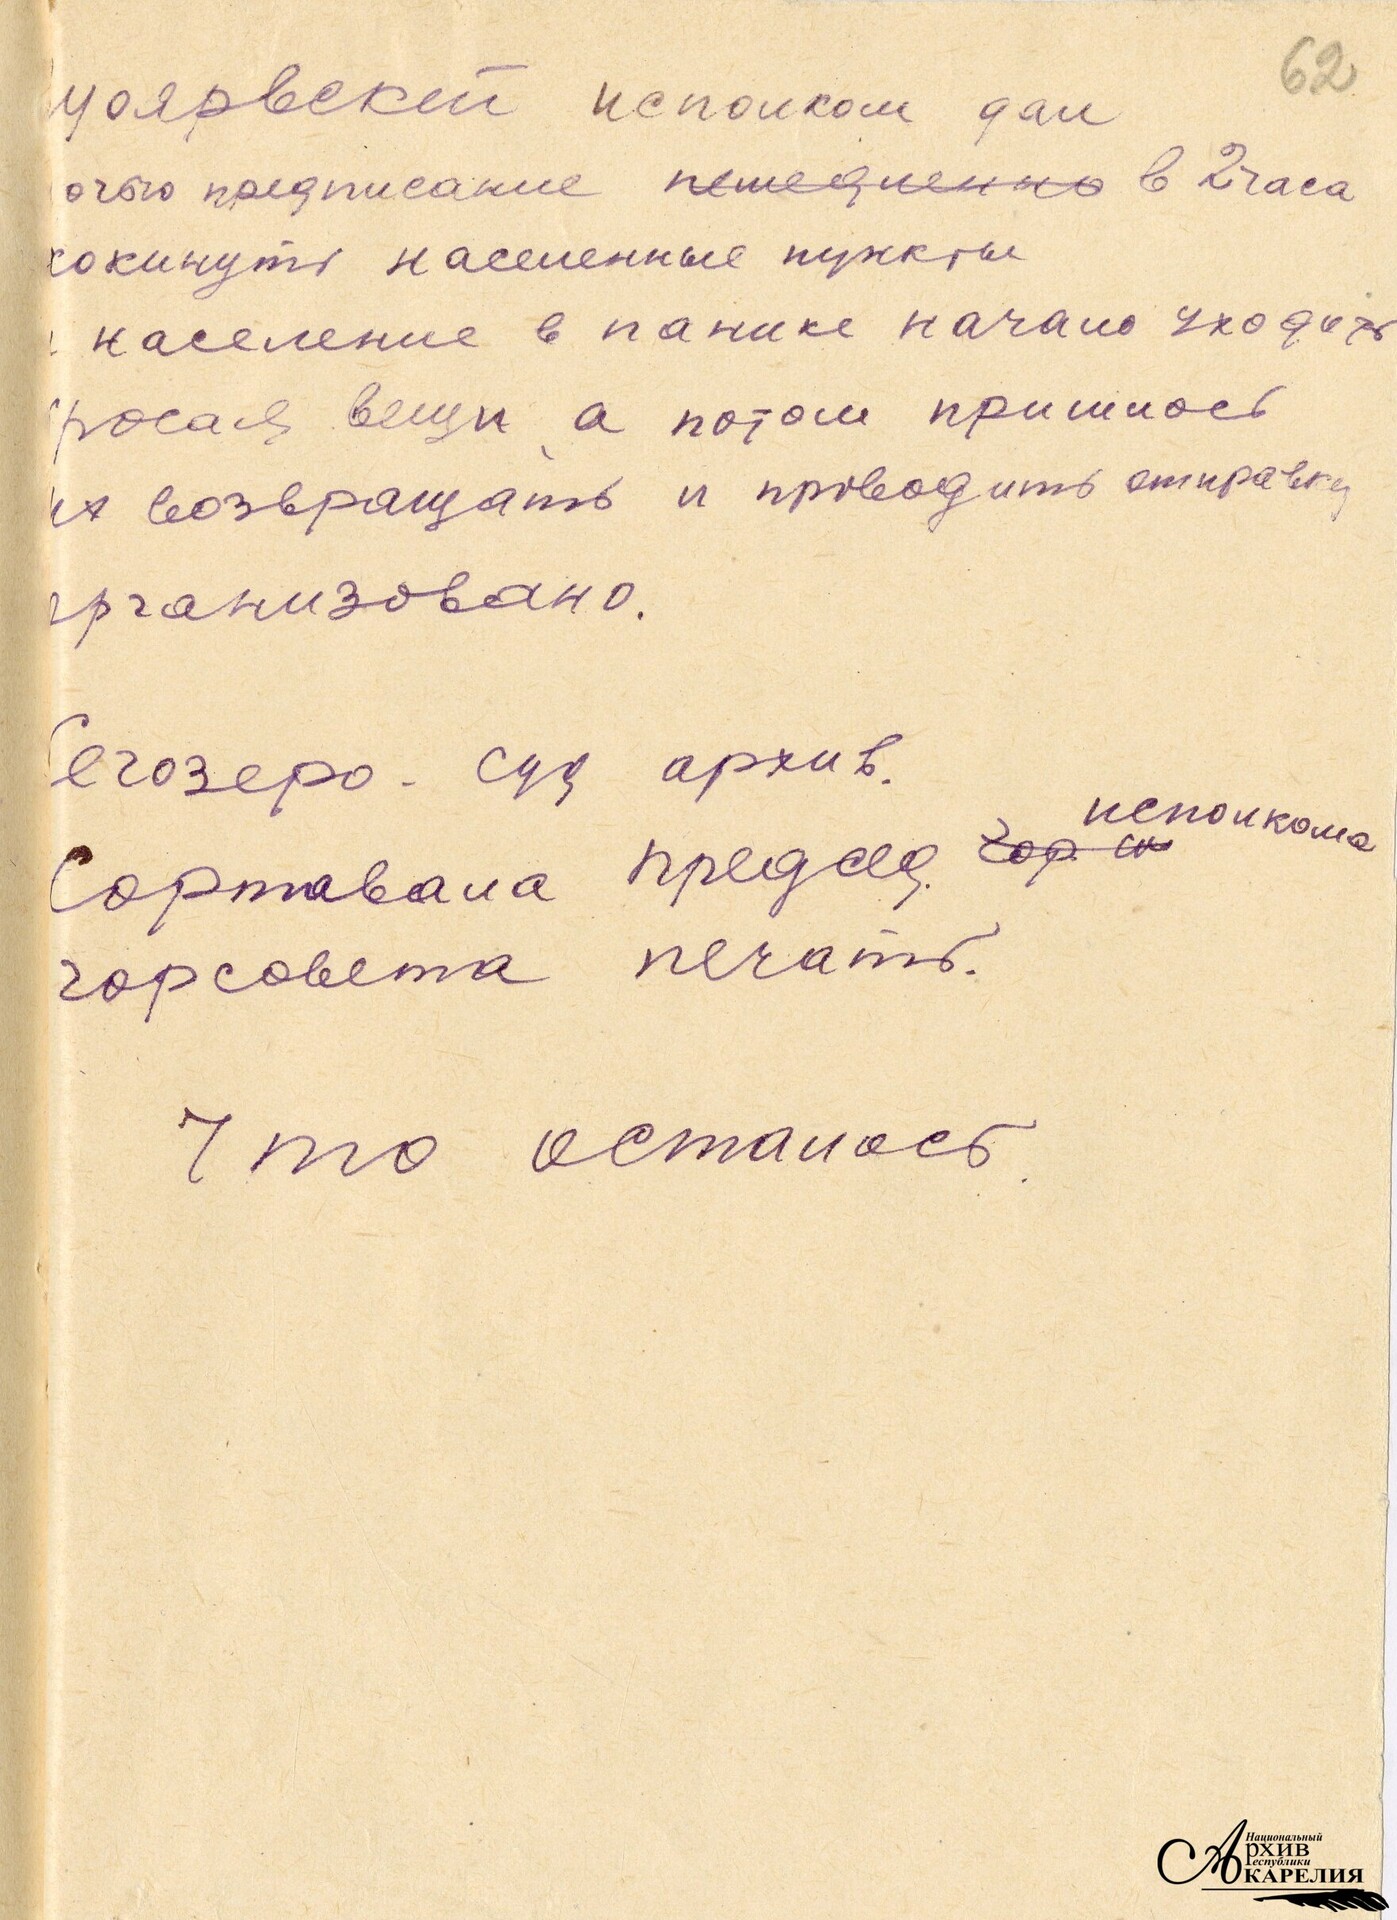 62
уоярвский исполком дал
очью предписание немедленно в 2 часа
покинуть населенные пункты
и население в панике начало уходить
бросая вещи, а потом пришлось
их возвращать и проводить отправку
организовано.
Сегозеро - суд архив.
исполкома
Сортавала председ. гор. ис
горсовета печать.
Что осталось.
Национальный
Архив
Республики
Карелия